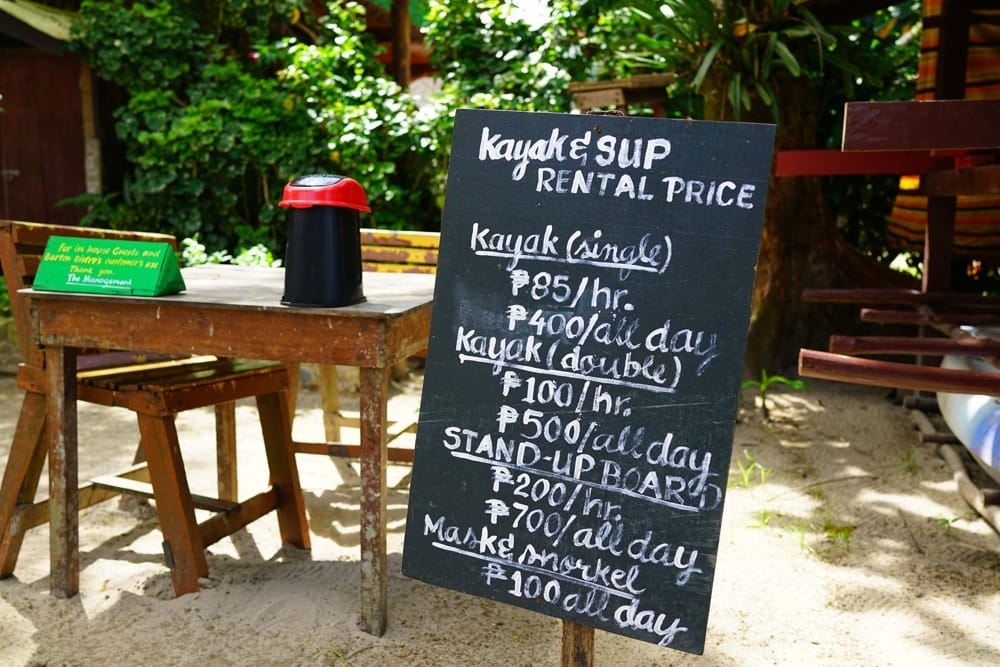 For in house Guests and
Barton Bistro's customer's use
Thank you.
The Management
Kayak & SUP
RENTAL PRICE
Kayak (single)
₱85/hr.
₱400/all day
Kayak (double)
₱100/hr.
₱500/all day
STAND-UP BOARD
₱200/hr.
₱700/all day
Mask & snorkel
₱100 all day